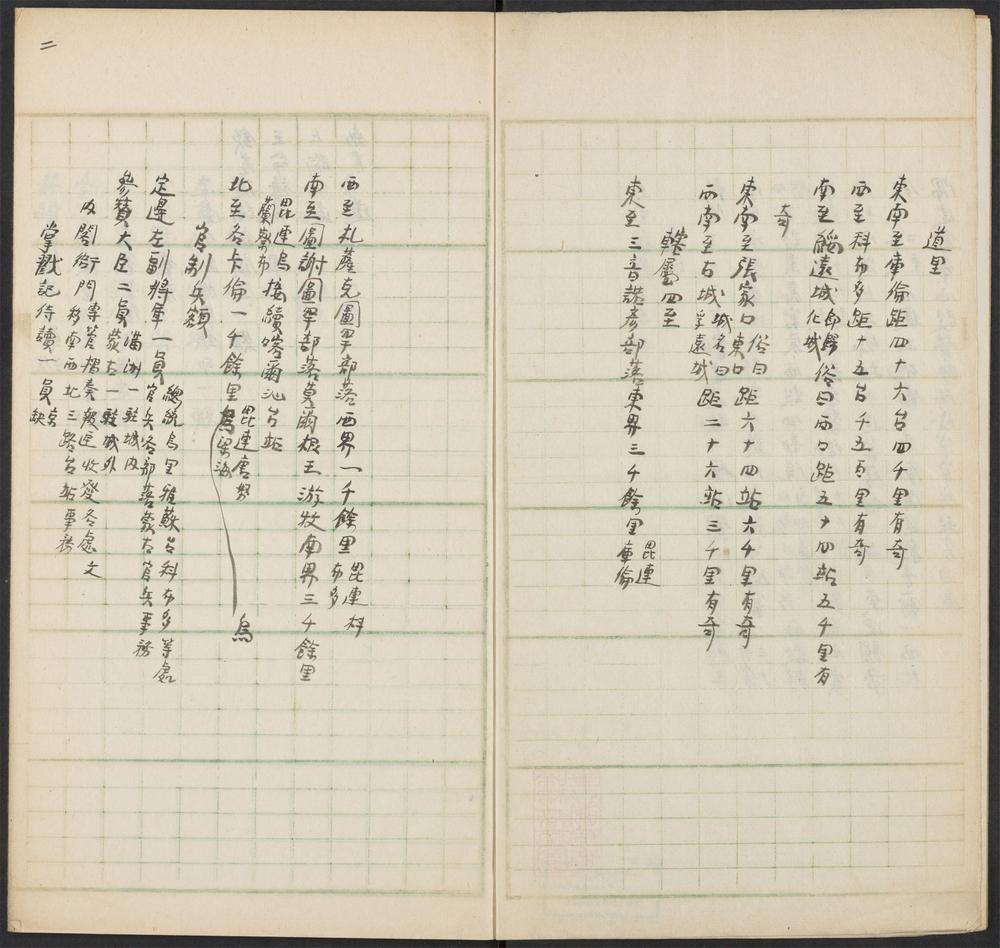 道里
東南至庫倫距四十六台四千里有奇
西至科布多距十五台千五百里有奇
南至綏遠城即歸化城俗曰西口距五十四站五千里有
奇
東南至張家口俗曰東口距六十四站六千里有奇
西南至古城城名曰孚遠城距二十六站三千里有奇
轄屬四至
東至三音諾彥部落東界三千餘里毘連庫倫
西至札薩克圖罕部落西界一千餘里毘連科布多
南至圖謝圖罕部落莫爾根王游牧南界三千餘里
毘連烏蘭察布接續喀爾沁台站
北至各卡倫一千餘里毘連唐努烏梁海 烏
官制兵額
定邊左副將軍一員總統烏里雅蘇台科布多等處官兵各部落蒙古官兵事務
參贊大臣二員滿洲一駐城內蒙古一駐城外
內閣衙門專管摺奏報匣收發各處文移南西北三路台站事務
掌戳記侍讀一員實缺
二